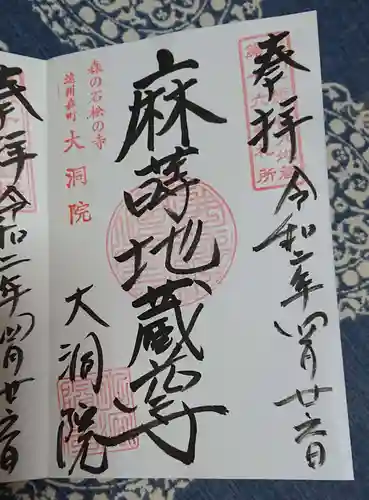 奉拝
令和二年四月廿六日
麻蒔地蔵尊
森の石松の寺
遠州森町
大洞院
大洞院
奉拝
令和二年四月廿六日